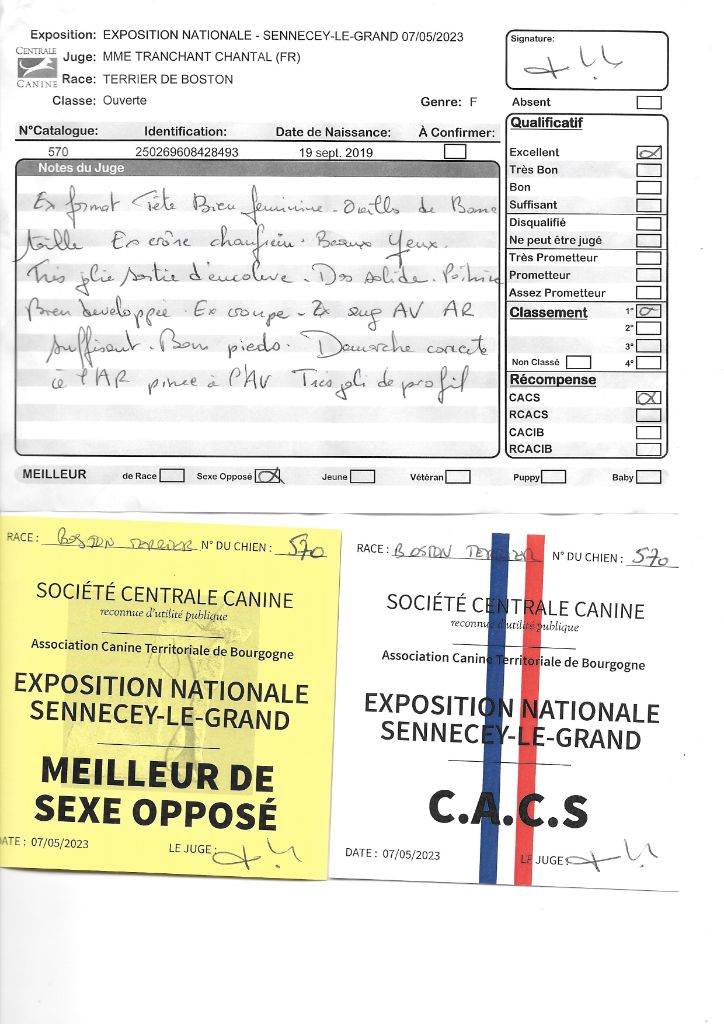 Exposition: EXPOSITION NATIONALE - SENNECEY-LE-GRAND 07/05/2023
CENTRALE
CANINE
Juge: MME TRANCHANT CHANTAL (FR)
Race: TERRIER DE BOSTON
Classe: Ouverte Genre: F
N°Catalogue: Identification: Date de Naissance: À Confirmer:
570 250269608428493 19 sept. 2019
Notes du Juge
Ex format Tête Bien feminine - Oreilles de Bonne
taille Ex crâne chanfrein. Beaux Yeux.
Très jolie sortie d'encolure. Dos solide. Poitrine
Bien developpée. Ex croupe - Ex ang AV AR
suffisant. Bons pieds. Demarche correcte
à l'AR pince à l'AV Très joli de profil
Signature:
Absent
Qualificatif
Excellent
Très Bon
Bon
Suffisant
Disqualifié
Ne peut être jugé
Très Prometteur
Prometteur
Assez Prometteur
Classement 1°
2°
3°
Non Classé 4°
Récompense
CACS
RCACS
CACIB
RCACIB
MEILLEUR de Race Sexe Opposé Jeune Vétéran Puppy Baby
RACE : BOSTON TERRIER N° DU CHIEN : 570
SOCIÉTÉ CENTRALE CANINE
reconnue d'utilité publique
Association Canine Territoriale de Bourgogne
EXPOSITION NATIONALE
SENNECEY-LE-GRAND
MEILLEUR DE
SEXE OPPOSÉ
DATE : 07/05/2023 LE JUGE :
RACE : BOSTON TERRIER N° DU CHIEN : 570
SOCIÉTÉ CENTRALE CANINE
reconnue d'utilité publique
Association Canine Territoriale de Bourgogne
EXPOSITION NATIONALE
SENNECEY-LE-GRAND
C.A.C.S
DATE : 07/05/2023 LE JUGE :